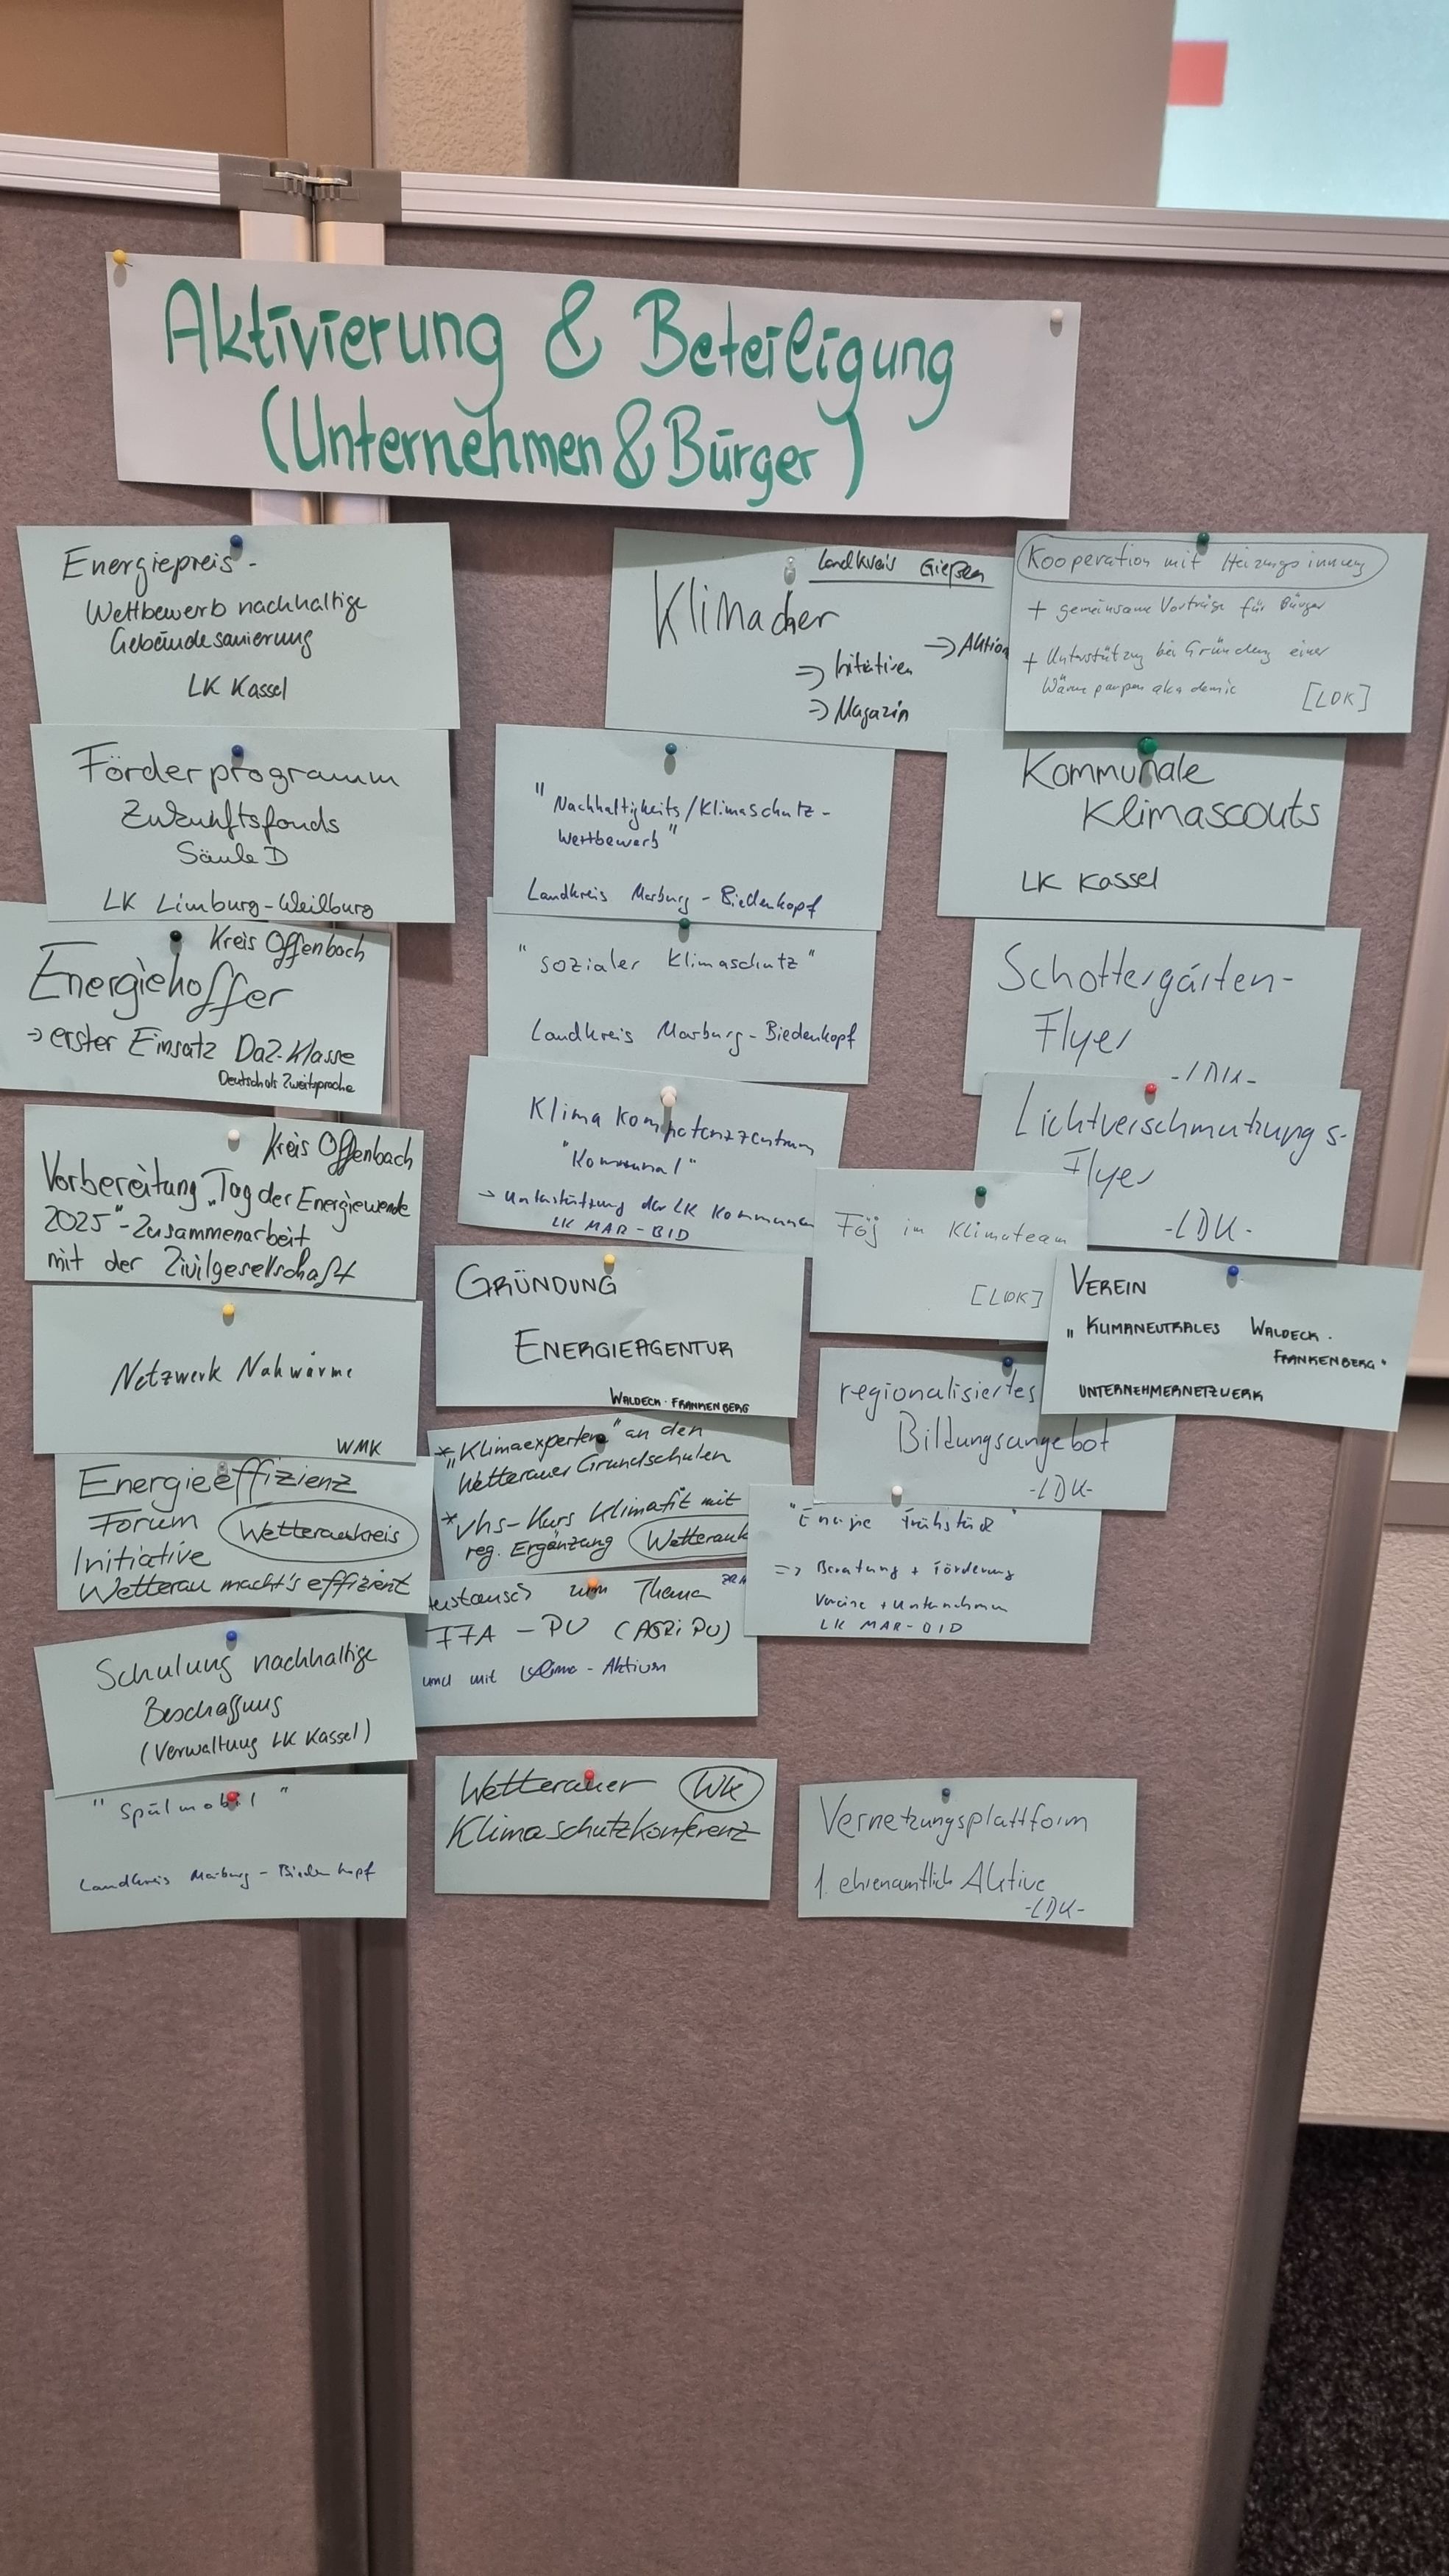 Aktivierung & Beteiligung
(Unternehmen & Bürger)
Energiepreis-
Wettbewerb nachhaltige
Gebäudesanierung
LK Kassel
Förderprogramm
Zukunftsfonds
Säule D
LK Limburg-Weilburg
Kreis Offenbach
Energiekoffer
→ erster Einsatz DaZ-Klasse
Deutsch als Zweitsprache
Kreis Offenbach
Vorbereitung "Tag der Energiewende
2025" - Zusammenarbeit
mit der Zivilgesellschaft
Netzwerk Nahwärme
WMK
Energieeffizienz
Forum Wetteraukreis
Initiative
Wetterau macht's effizient
Schulung nachhaltige
Beschaffung
(Verwaltung LK Kassel)
"Spülmobil"
Landkreis Marburg-Biedenkopf
Landkreis Gießen
Klimacher
→ Aktion
⇒ Initiativen
⇒ Magazin
"Nachhaltigkeits/Klimaschutz-
Wettbewerb"
Landkreis Marburg-Biedenkopf
"sozialer Klimaschutz"
Landkreis Marburg-Biedenkopf
Klimakompetenzzentrum
"Kommunal"
→ Unterstützung der LK Kommunen
LK MAR-BID
GRÜNDUNG
ENERGIEAGENTUR
WALDECK-FRANKENBERG
* "Klimaexperten" an den
Wetterauer Grundschulen
* vhs-Kurs Klimafit mit
reg. Ergänzung Wetterauk
zum Thema
FFA - PV (AGRi PV)
und mit Klima-Aktiven
Wetterauer WK
Klimaschutzkonferenz
Kooperation mit Heizungsinnung
+ gemeinsame Vorträge für Bürger
+ Unterstützung bei Gründung einer
Wärmepumpenakademie [LDK]
Kommunale
Klimascouts
LK Kassel
Schottergärten-
Flyer
-LDK-
Lichtverschmutzungs-
Flyer
-LDK-
Föj im Klimateam
[LDK]
VEREIN
"KLIMANEUTRALES WALDECK-
FRANKENBERG"
UNTERNEHMERNETZWERK
regionalisiertes
Bildungsangebot
-LDK-
"Energie Frühstück"
=> Beratung + Förderung
Vereine + Unternehmen
LK MAR-BID
Vernetzungsplattform
f. ehrenamtlich Aktive
-LDK-